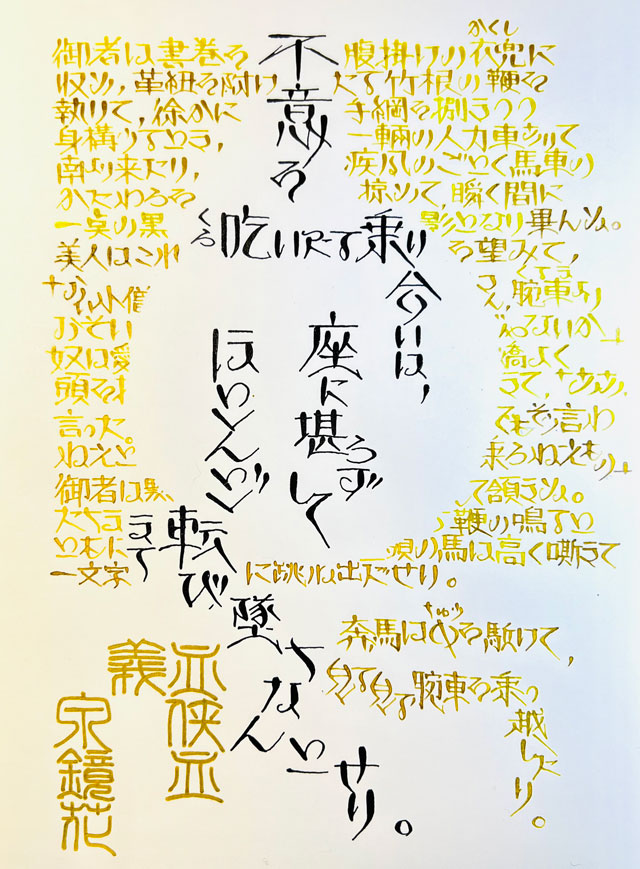 御者は書巻を腹掛けの衣兜に
かくし
収め、革紐を附けたる竹根の鞭を
執りて、徐かに手綱を捌きつつ
身構うるとき、一輛の人力車ありて
南より来たり、疾風のごとく馬車の
かたわらを掠めて、瞬く間に
一点の黒影となり畢んぬ。
美人はこれを望みて、
「おい小僧さん、腕車より
くるま
おそいじゃないか」
奴は愛嬌よく
頭を
言った。でもそう言わ
ねえと乗らねえもの」
御者は黙して頷きぬ。
たちまち鞭の鳴ると
ともに二頭の馬は高く嘶きて
一文字に跳ね出だせり。
不意を
くら
吃いたる乗り
合いは、
座に堪らずして
ほとんど
転び
墜ちなんとせり。
奔馬は中を駈けて、
ちゅう
見る見る腕車を乗っ
越したり。
義血侠血
泉鏡花